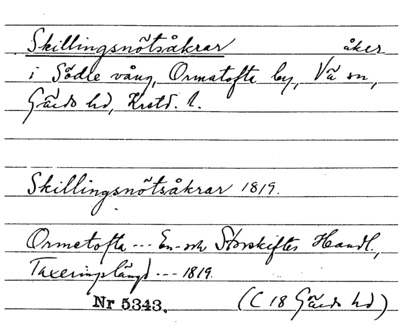 Skillingsnötsåkrar åker
i Södle vång, Ormatofta by, Vä sn,
Gärds hd, Krstd. l.
Skillingsnötsåkrar 1819.
Ormetofta --- En- och Storskiftes Handl.,
Taxeringslängd --- 1819.
Nr 5343. (C 18 Gärds hd)